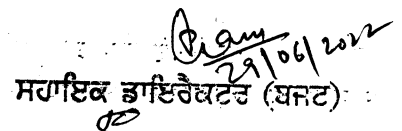 29/06/2022
ਸਹਾਇਕ ਡਾਇਰੈਕਟਰ (ਬਜਟ)